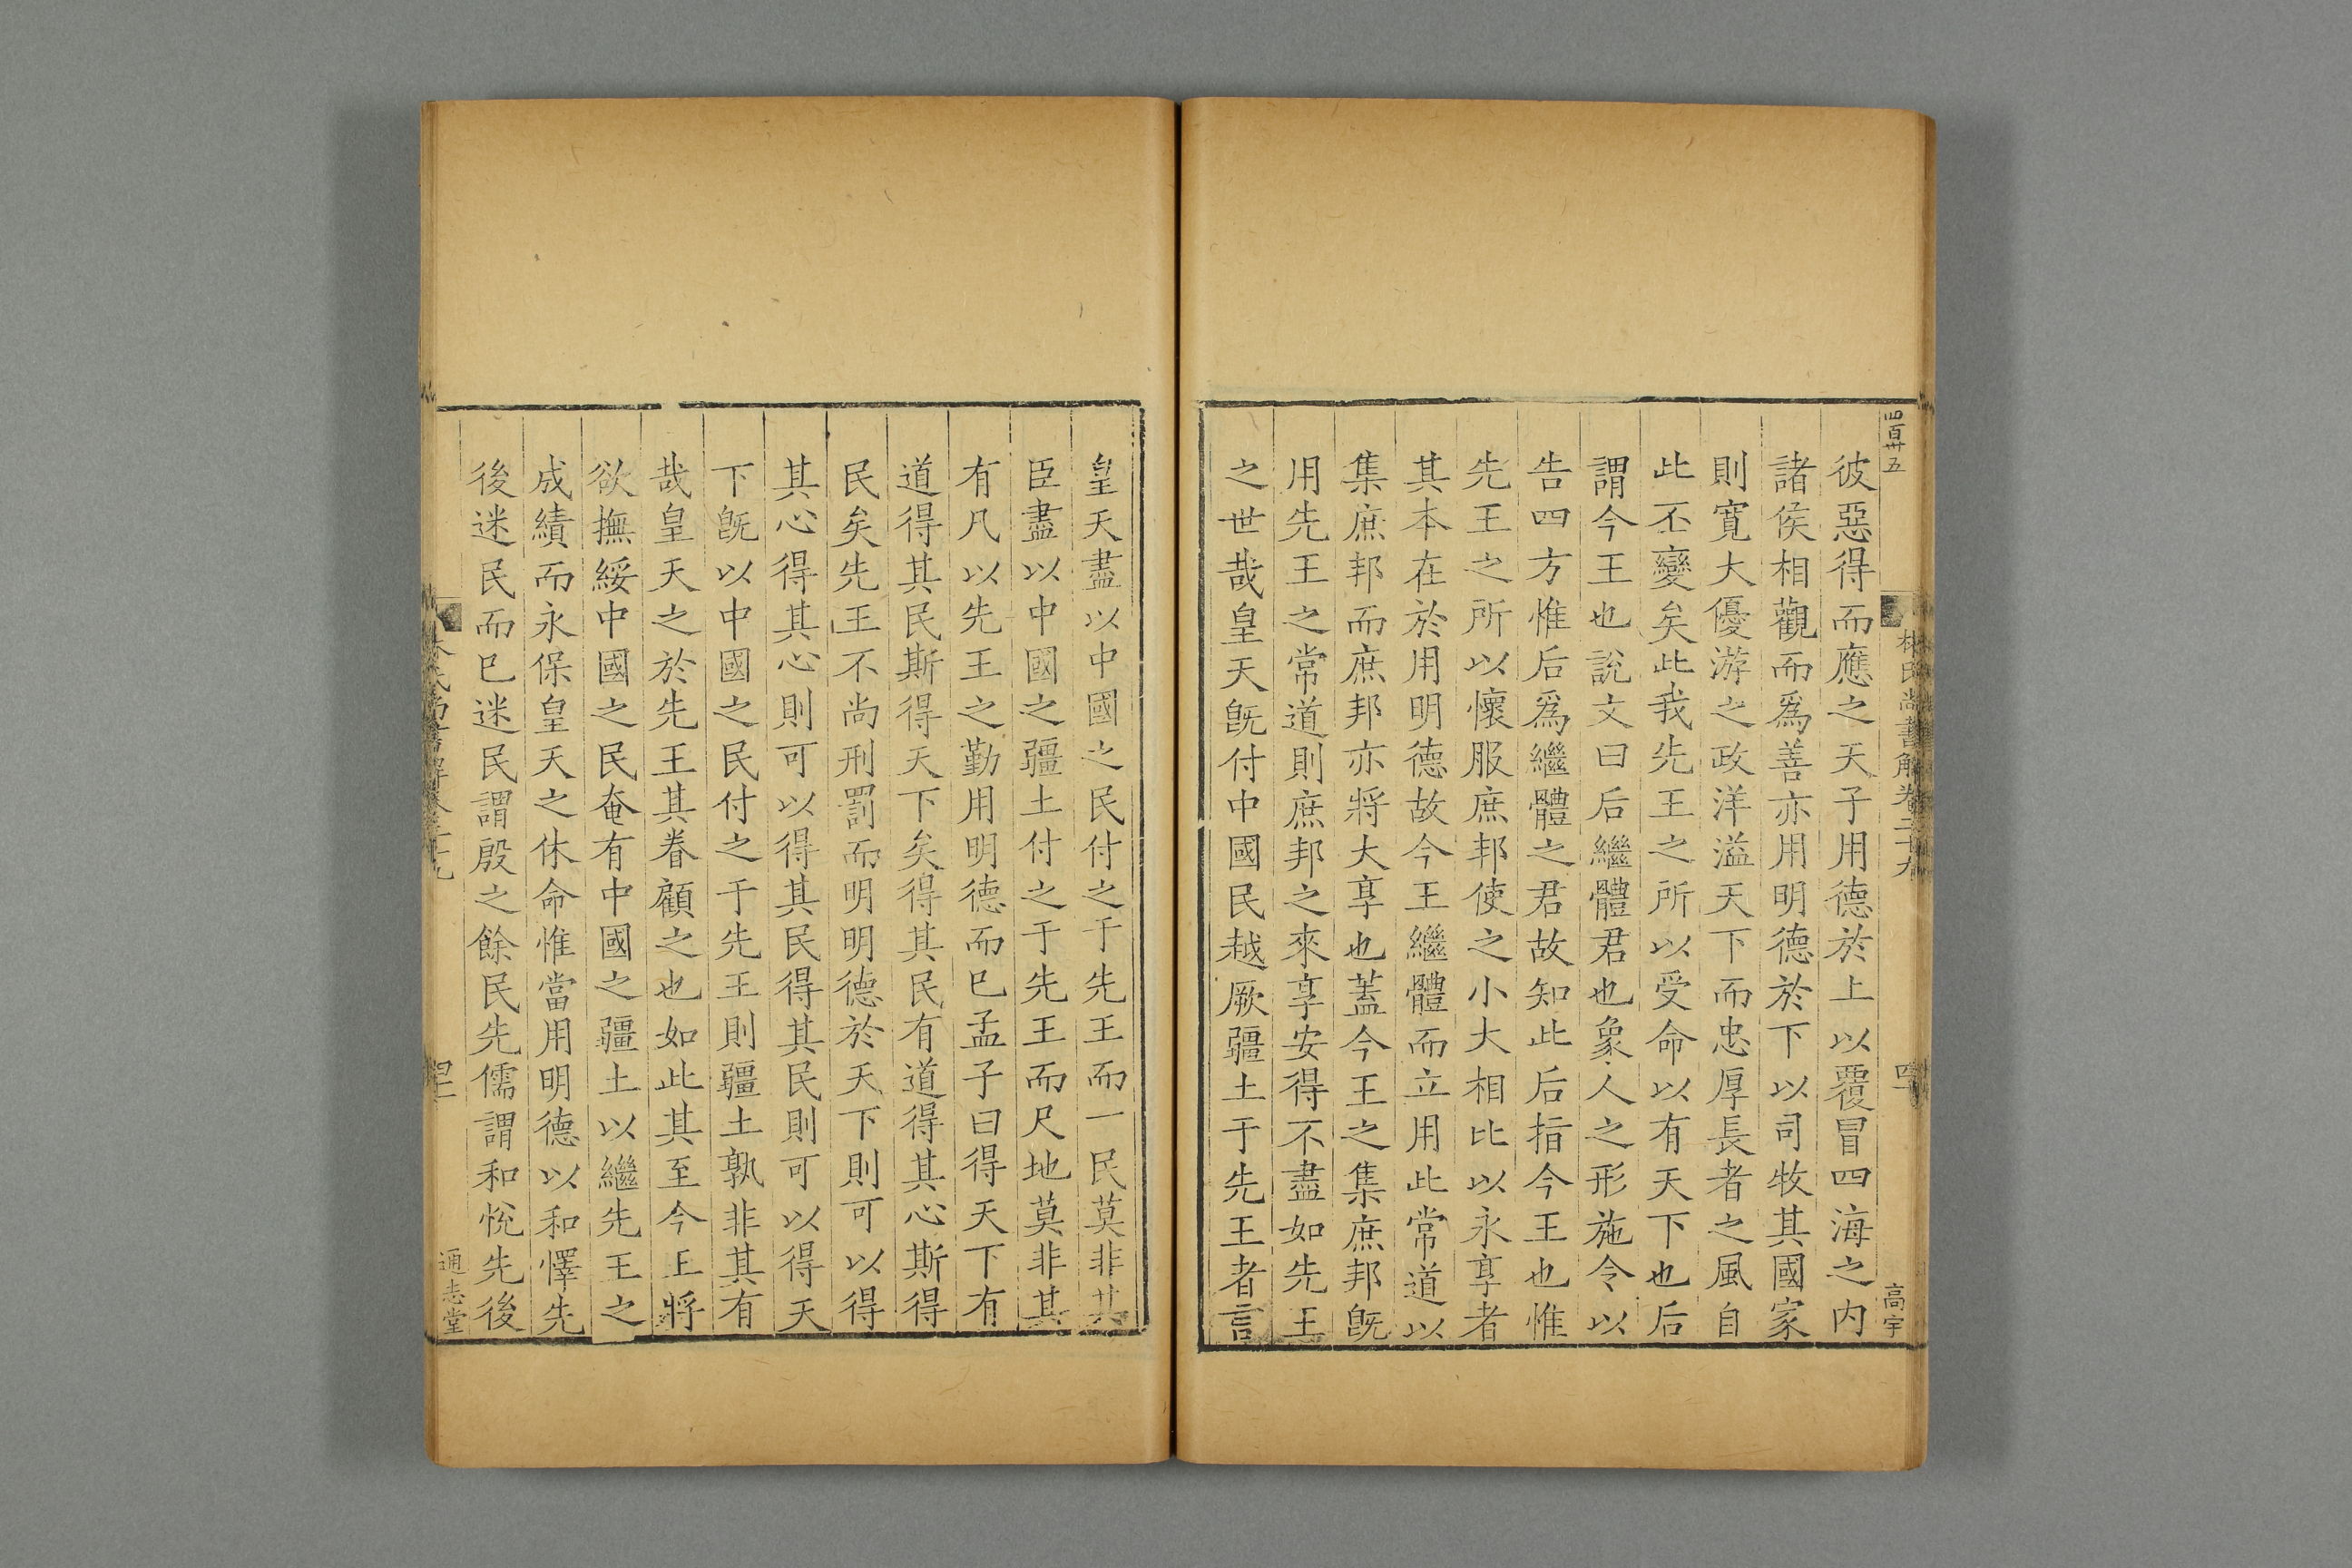 彼惡得而應之天子用德於上以覆冒四海之内
諸侯相觀而爲善亦用明德於下以司牧其國家
則寛大優游之政洋溢天下而忠厚長者之風自
此丕變矣此我先王之所以受命以有天下也后
謂今王也說文曰后繼體君也象人之形施令以
告四方惟后爲繼體之君故知此后指今王也惟
先王之所以懷服庶邦使之小大相比以永享者
其本在於用明德故今王繼體而立用此常道以
集庶邦而庶邦亦將大享也蓋今王之集庶邦旣
用先王之常道則庶邦之來享安得不盡如先王
之世哉皇天旣付中國民越厥疆土于先王者言
皇天盡以中國之民付之于先王而一民莫非其
臣盡以中國之疆土付之于先王而尺地莫非其
有凡以先王之勤用明德而巳孟子曰得天下有
道得其民斯得天下矣得其民有道得其心斯得
民矣先王不尚刑罰而明明德於天下則可以得
其心得其心則可以得其民得其民則可以得天
下旣以中國之民付之于先王則疆土孰非其有
哉皇天之於先王其眷顧之也如此其至今王將
欲撫綏中國之民奄有中國之疆土以繼先王之
成績而永保皇天之休命惟當用明德以和懌先
後迷民而巳迷民謂殷之餘民先儒謂和悅先後
林氏尚書解卷二十九
高宇
通志堂